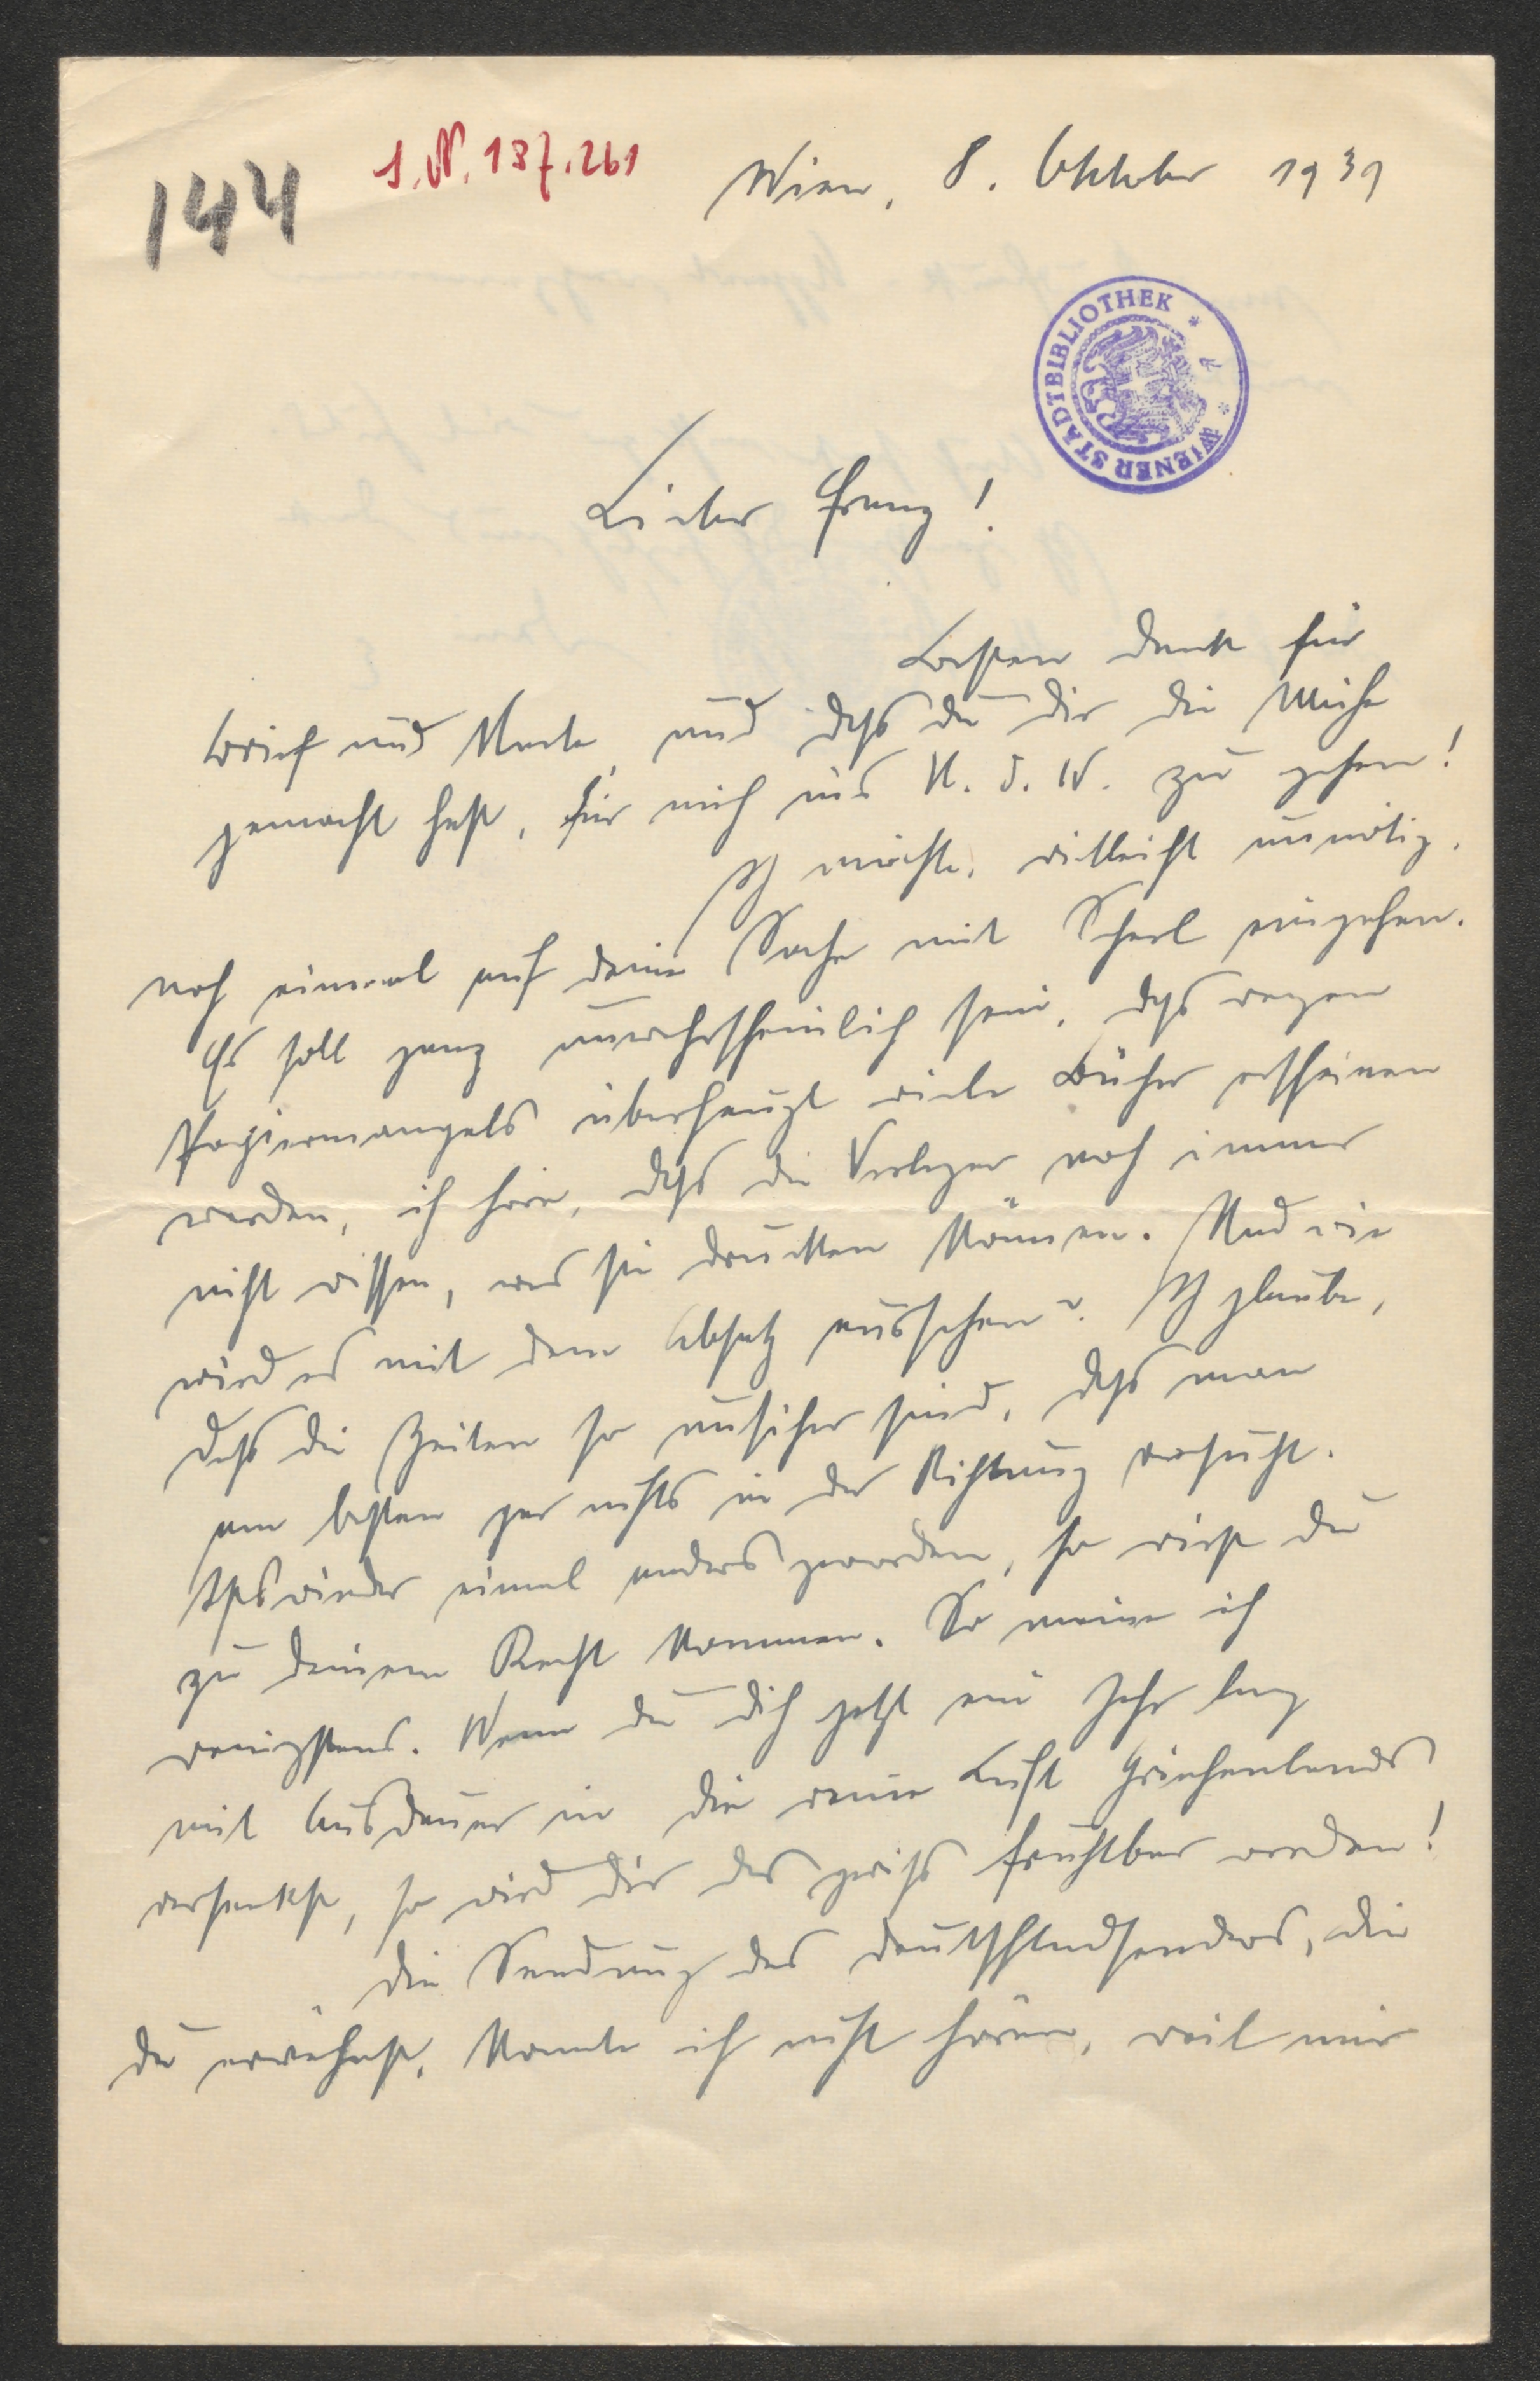 144
I. N. 187.261
Wien, 8. Oktober 1939
WIENER STADTBIBLIOTHEK
Lieber Franz!
Besten Dank für
Brief und Karte, und dass du dir die Mühe
gemacht hast, für mich ins K. d. W. zu gehen!
Ich möchte, vielleicht unnötig,
noch einmal auf deine Sache mit Scherl eingehen.
Es soll ganz unwahrscheinlich sein, dass wegen
Papiermangels überhaupt viele Bücher erscheinen
werden, ich höre, dass die Verleger noch immer
nicht wissen, was sie drucken können. Und wie
wird es mit dem Absatz aussehen? Ich glaube,
dass die Zeiten so unsicher sind, dass man
am besten gar nichts in der Richtung versucht.
Ists wieder einmal anders geworden, so wirst du
zu deinem Recht kommen. So meine ich
wenigstens. Wenn du dich jetzt ein Jahr lang
mit Ausdauer in die reine Luft Griechenlands
versenkst, so wird dir das gewiss fruchtbar werden!
Die Sendung des Deutschlandsenders, die
du erwähnst, konnte ich nicht hören, weil mir